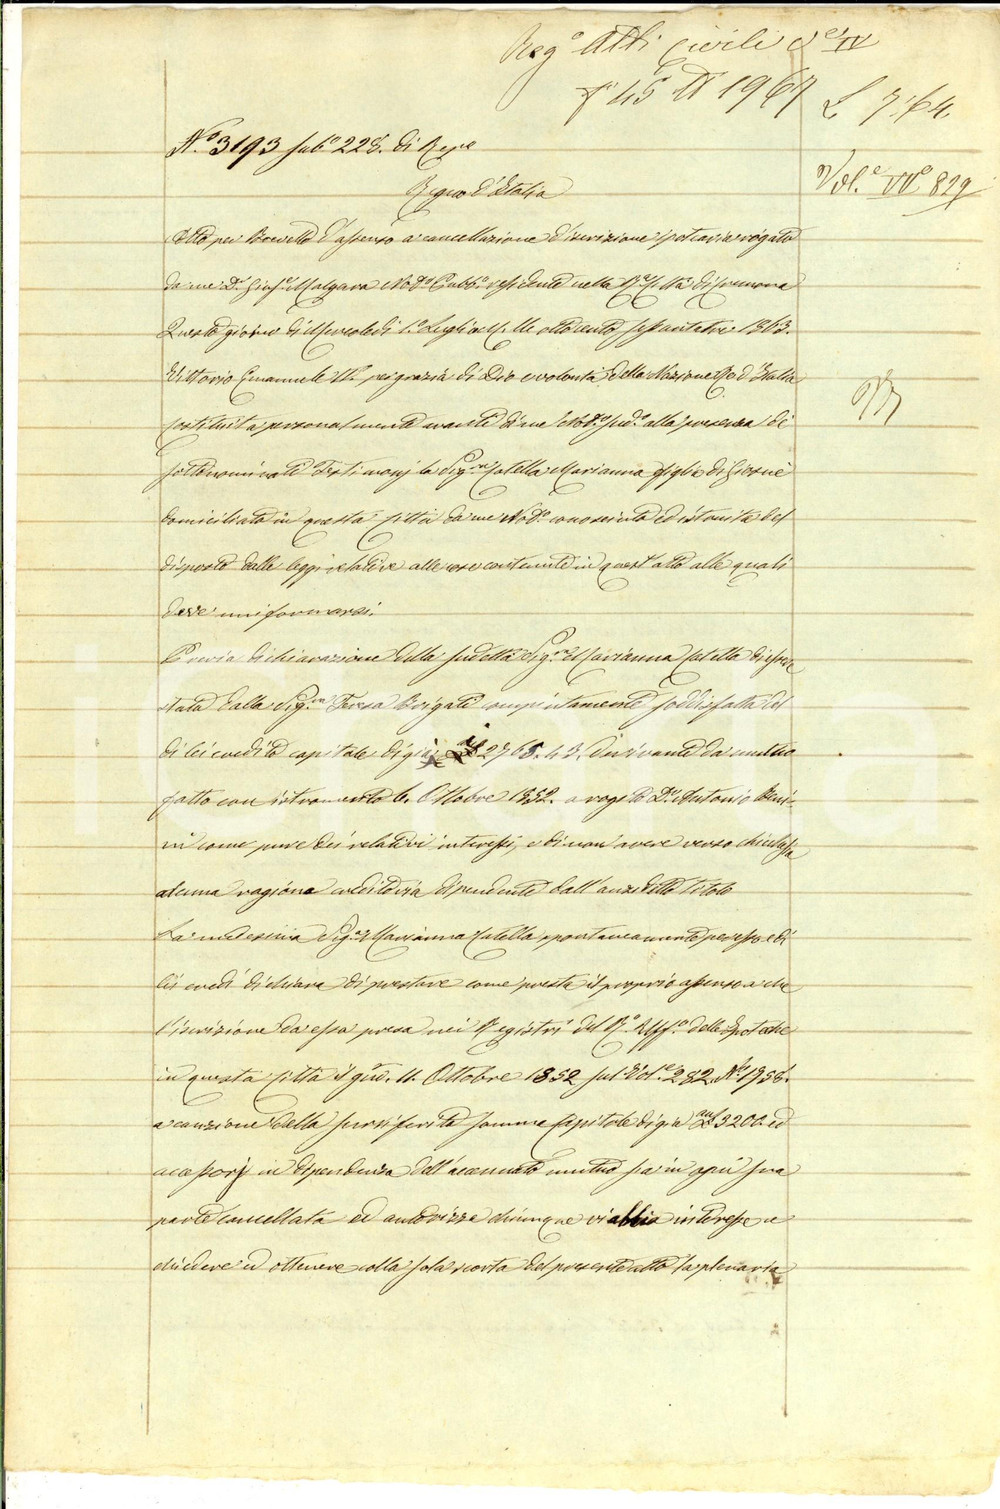 Reg.º Atti Civili Vol.e IV
fº 45 Nº 1967
L 7.64
Vol.e IVº 829
Nº 3193 subº 228. di Rep.e
Regno d'Italia
Atto per Brevetto d'assenso a cancellazione d'iscrizione ipotecaria rogato
da me Dr. Gius.e Malgara Not.o Pubb.o residente nella R.a Città di Cremona
Questo giorno di Mercoledì 1.º Luglio Mille ottocento sessantatre 1863.
Vittorio Emanuele II.º per grazia di Dio e volontà della Nazione Re d'Italia
Costituita personalmente avanti di me Not.o sud.o alla presenza dei
sottonominati Testimonj la Sig.ra Catella Marianna figlia di Giosuè
domiciliata in questa Città da me Not.o conosciuta ed istruita del
disposto dalle leggi relative alle cose contenute in quest'atto alle quali
deve uniformarsi.
Previa dichiarazione della sudetta Sig.ra Marianna Catella di essere
stata dalla Sig.ra Teresa Brigati compiutamente soddisfatta del
di lei credito capitale di già 2765.43. derivante da mutuo
fatto con istromento 6. Ottobre 1852. a rogito Dr. Antonio
ni come pure dei relativi interessi, e di non avere verso chicchessia
alcuna ragione creditoria dipendente dall'anzidetto Titolo
La medesima Sig.ra Marianna Catella spontaneamente per essa e di
lei eredi dichiara di prestare come presta il proprio assenso a che
l'iscrizione da essa presa nei Registri del R.o Uff.o delle Ipoteche
in questa Città il giorno 11. Ottobre 1852 sul Vol.e 282. Nº 1958.
a cauzione della surriferita somma Capitale di già 3200. ed
accessorj in dipendenza dell'accennato mutuo sia in ogni sua
parte cancellata ed autorizza chiunque vi abbia interesse a
chiedere ed ottenere colla sola scorta del presente atto la plenaria